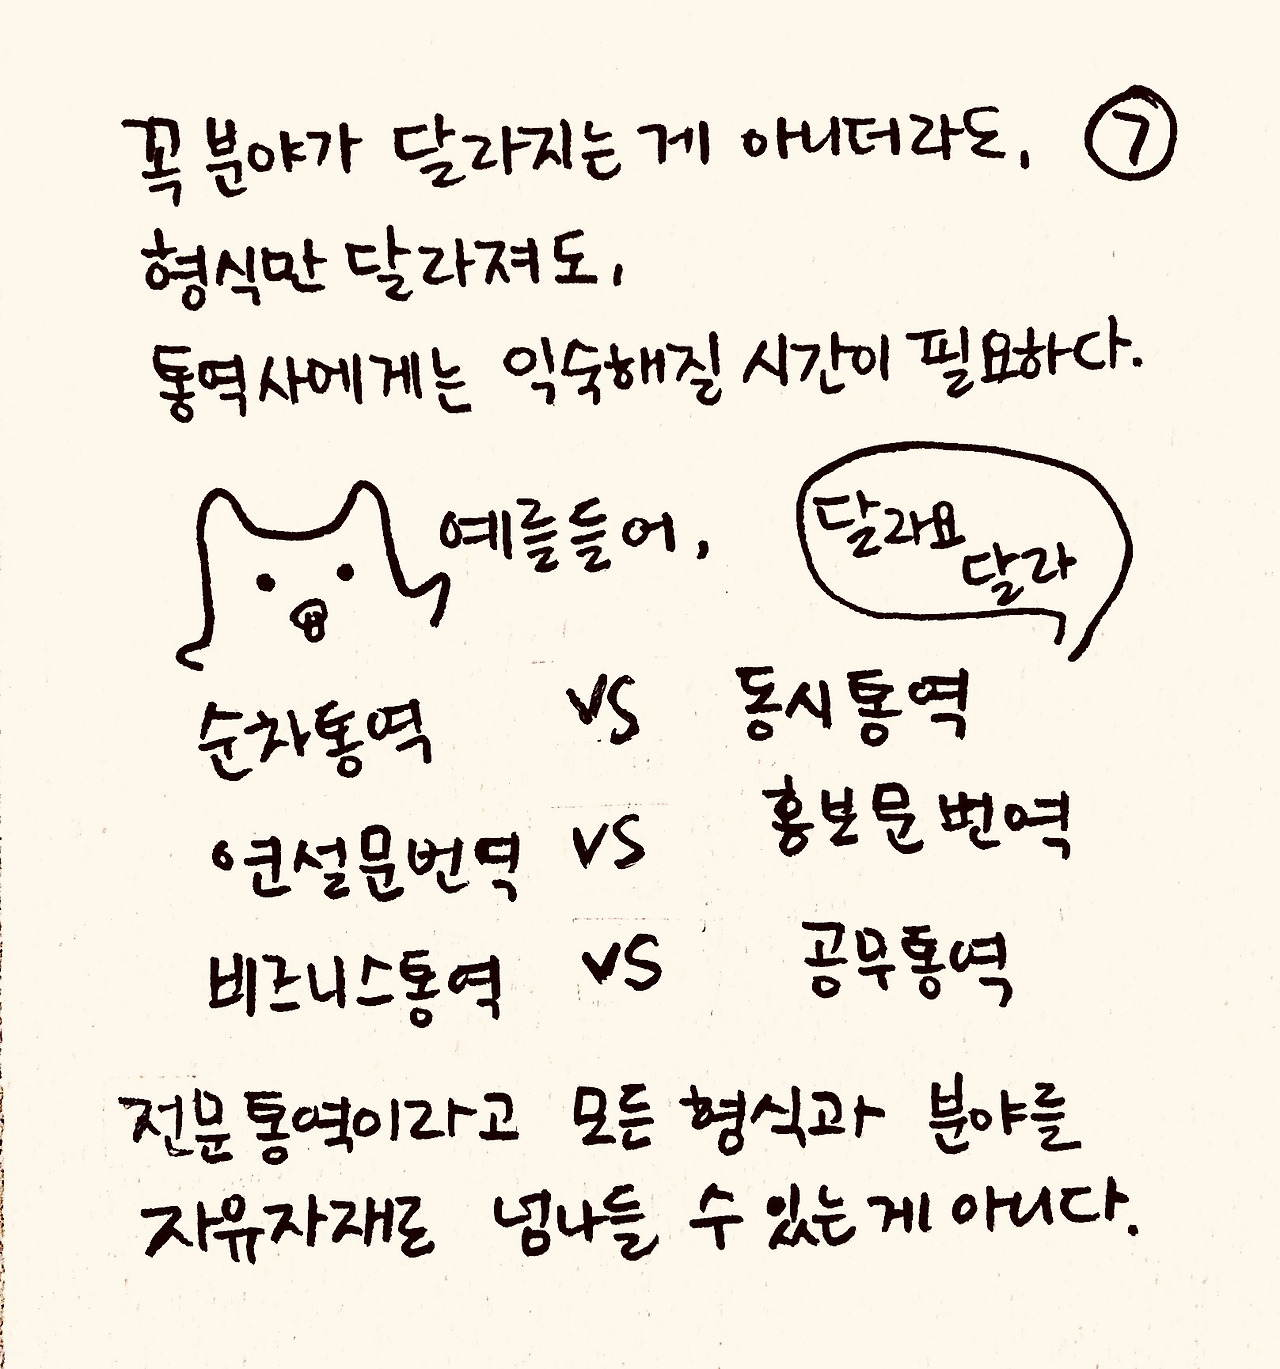 꼭 분야가 달라지는 게 아니더라도, ⑦
형식만 달라져도,
통역사에게는 익숙해질 시간이 필요하다.
예를들어,
달라요
달라
순차통역 VS 동시통역
연설문번역 VS 홍보문 번역
비즈니스통역 VS 공무통역
전문통역이라고 모든 형식과 분야를
자유자재로 넘나들 수 있는 게 아니다.